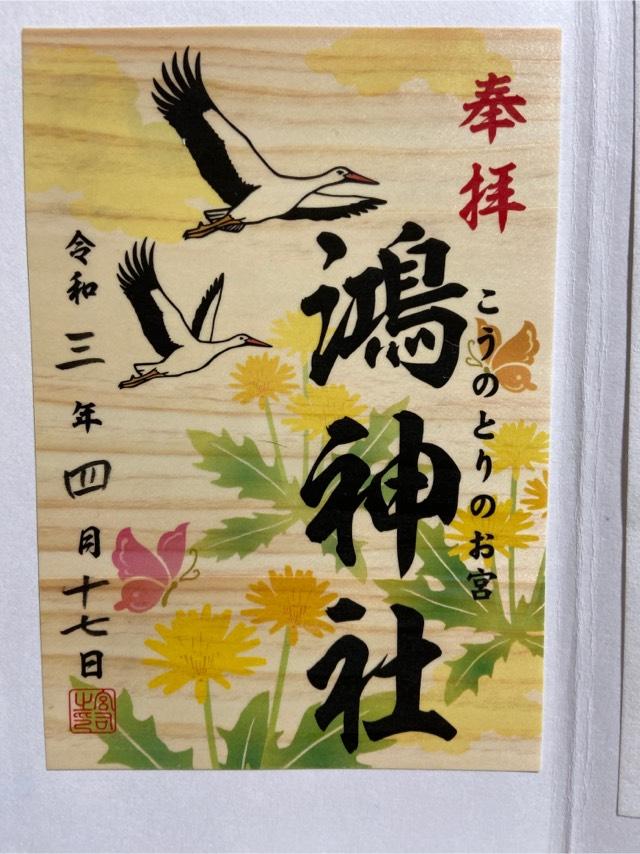 奉拝
こうのとりのお宮
鴻神社
令和三年四月十七日
宮司之印